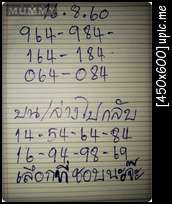 MUMMY
16.8.60
964-984-
164-184-
064-084
บน/ล่างไปกลับ
14-54-64-84
16-94-98-69
เลือกที่ชอบนะจ๊ะ
[450x600] upic.me